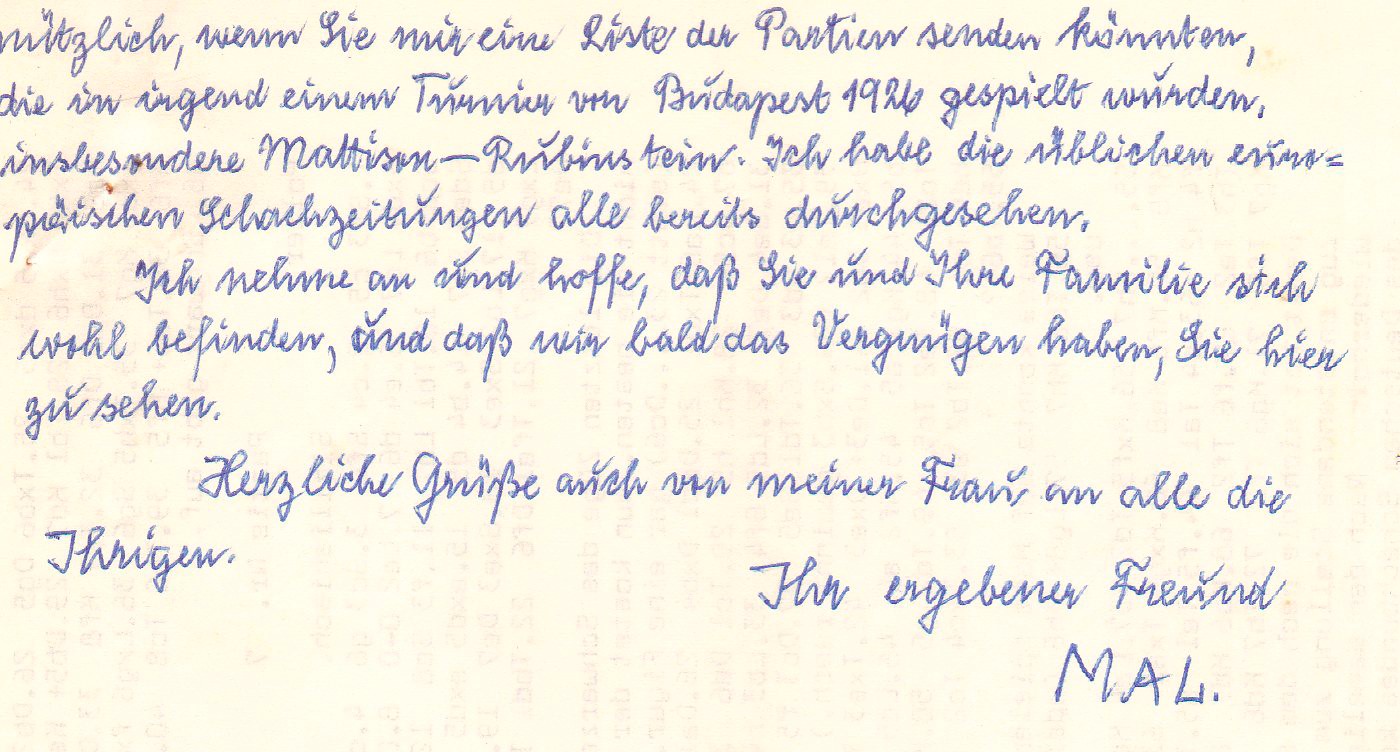 nützlich, wenn Sie mir eine Liste der Partien senden könnten,
die in irgend einem Turnier von Budapest 1926 gespielt wurden,
insbesondere Mattison—Rubinstein. Ich habe die üblichen euro=
päischen Schachzeitungen alle bereits durchgesehen.
Ich nehme an und hoffe, daß Sie und Ihre Familie sich
wohl befinden, und daß wir bald das Vergnügen haben, Sie hier
zu sehen.
Herzliche Grüße auch von meiner Frau an alle die
Ihrigen.
Ihr ergebener Freund
MAL.